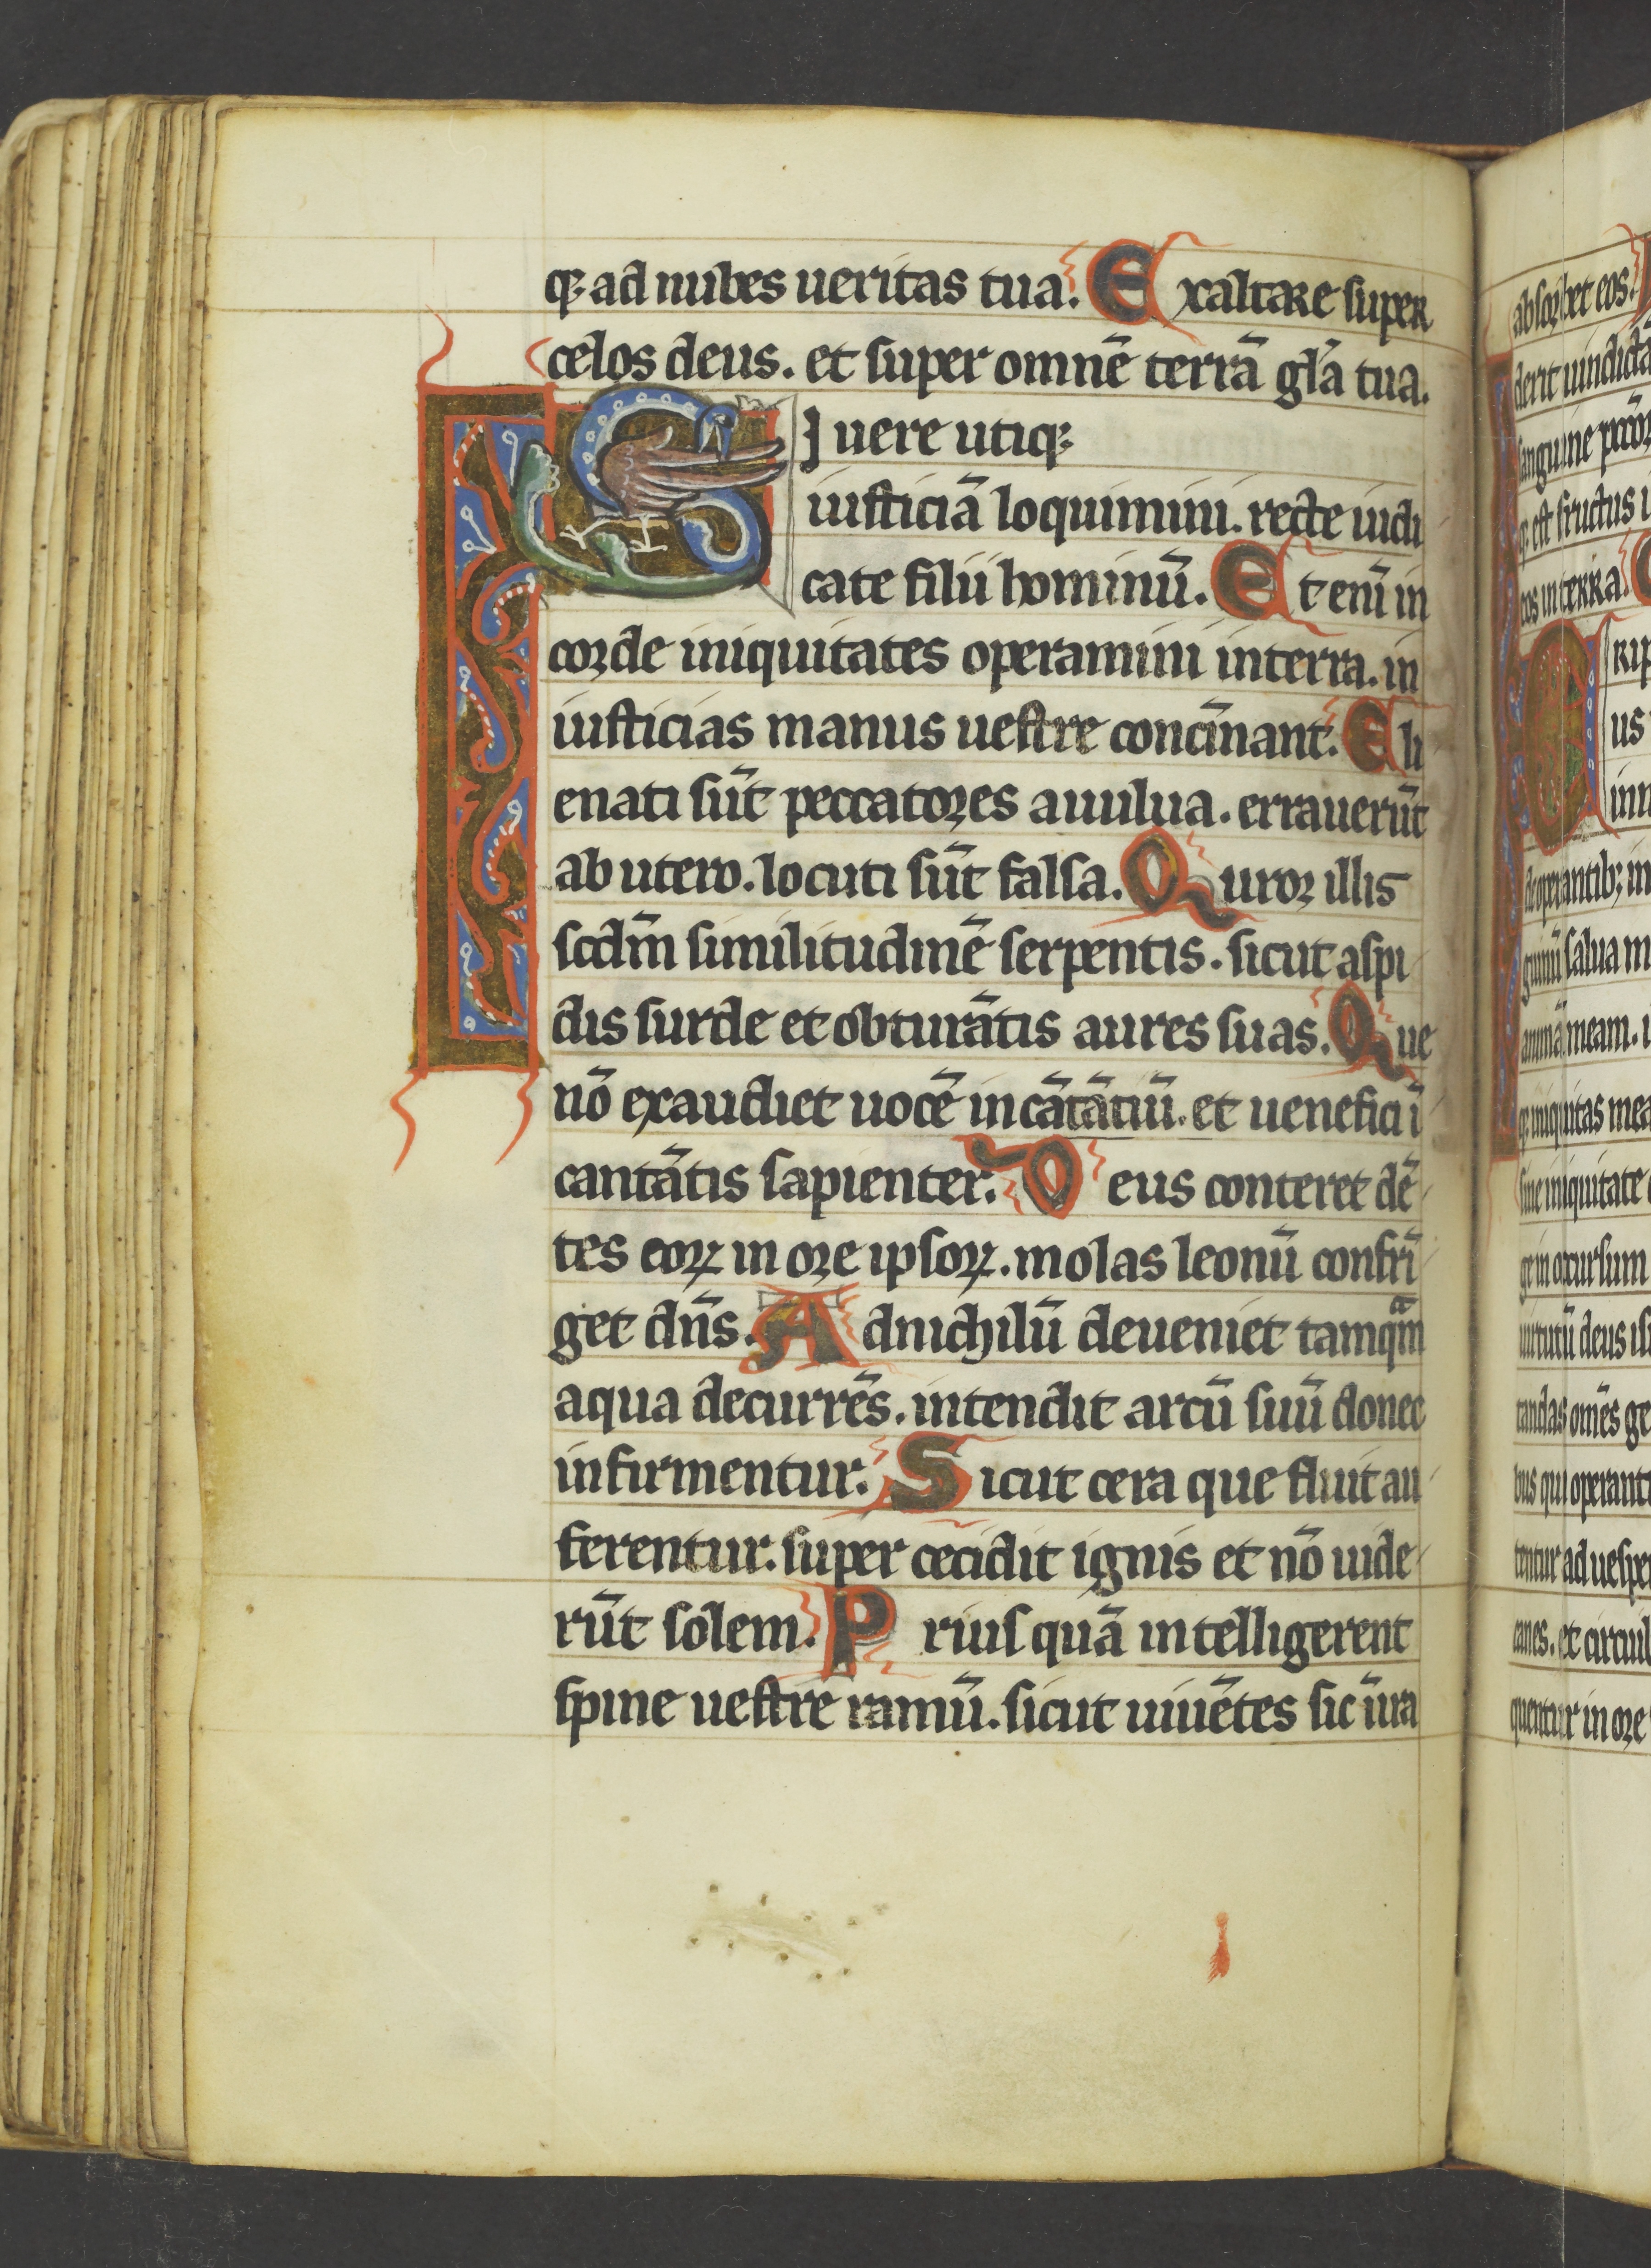 qꝫ ad nubes ueritas tua. Exaltare super
celos deus. et super omnē terrā gl̄a tua.
SI uere utiqꝫ
iusticiā loquimini. recte iudi
cate filii hominū. Et eni̅ in
corde iniquitates operamini in terra. in
iusticias manus uestre conci̅nant. Eli
enati su̅t peccatores a uulua. erraueru̅t
ab utero. locuti su̅t falsa. Quror illis
scd̄m similitudinē serpentis. sicut aspi
dis surde et obturātis aures suas. Que
nō exaudiet uocē incātātiū. et uenefici ī
cantātis sapienter. Deus conteret dē
tes eoꝝ in ore ipsoꝝ. molas leonū confrī
get dn̄s. Ad nichilū deueniet tamqᵃ̄m
aqua decurrēs. intendit arcū suū donec
infirmentur. Sicut cera que fluit au
ferentur. super cecidit ignis et nō uide
ru̅t solem. Priusquā intelligerent
spine uestre ramū. sicut uiuētes sic ūra
absorbet eos.
derit uindictā
sanguine
qꝫ est fructus
eos in terra.
Erip
us
inn
de operantibꝫ in
salua m
animā meam.
qꝫ iniquitas mea
sine iniquitate
ge in occursum
uirtutū deus isr
tandas om̄s ge
bus qui operant
tentur ad uesper
canes. et circuil
quentur in ore